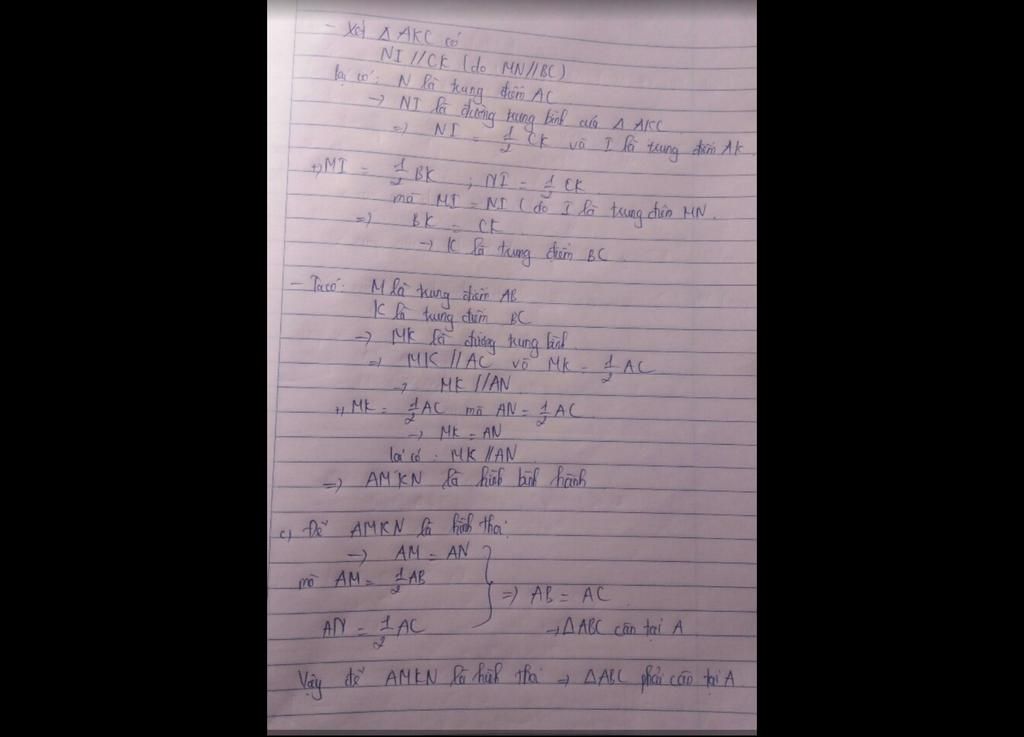 - Xét Δ AKC có
NI // CK (do MN // BC)
lại có: N là trung điểm AC
→ NI là đường trung bình của Δ AKC
=> NI = 1/2 CK và I là trung điểm AK
+) MI = 1/2 BK ; NI = 1/2 CK
mà MI = NI ( do I là trung điểm MN.
=> BK = CK
→ K là trung điểm BC
- Ta có: M là trung điểm AB
K là trung điểm BC
→ MK là đường trung bình
=> MK // AC và MK = 1/2 AC
→ MK // AN
+) MK = 1/2 AC mà AN = 1/2 AC
→ MK = AN
lại có : MK // AN
=> AMKN là hình bình hành
c, Để AMKN là hình thoi
→ AM = AN
mà AM = 1/2 AB
=> AB = AC
AN = 1/2 AC
→ ΔABC cân tại A
Vậy để AMKN là hình thoi → ΔABC phải cân tại A